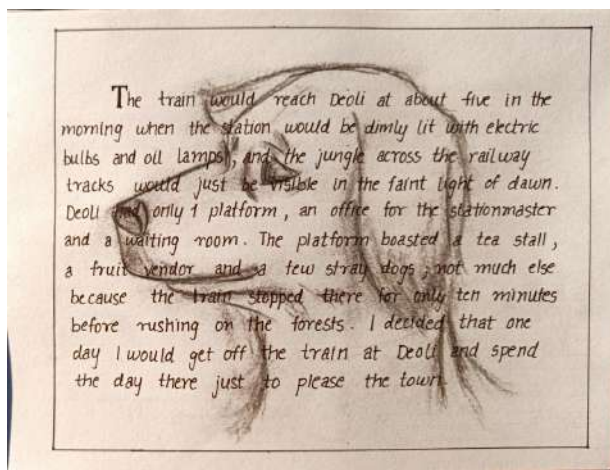 The train would reach Deoli at about five in the
morning when the station would be dimly lit with electric
bulbs and oil lamps, and the jungle across the railway
tracks would just be visible in the faint light of dawn.
Deoli had only 1 platform, an office for the stationmaster
and a waiting room. The platform boasted a tea stall,
a fruit vendor and a few stray dogs; not much else
because the train stopped there for only ten minutes
before rushing on the forests. I decided that one
day I would get off the train at Deoli and spend
the day there just to please the town